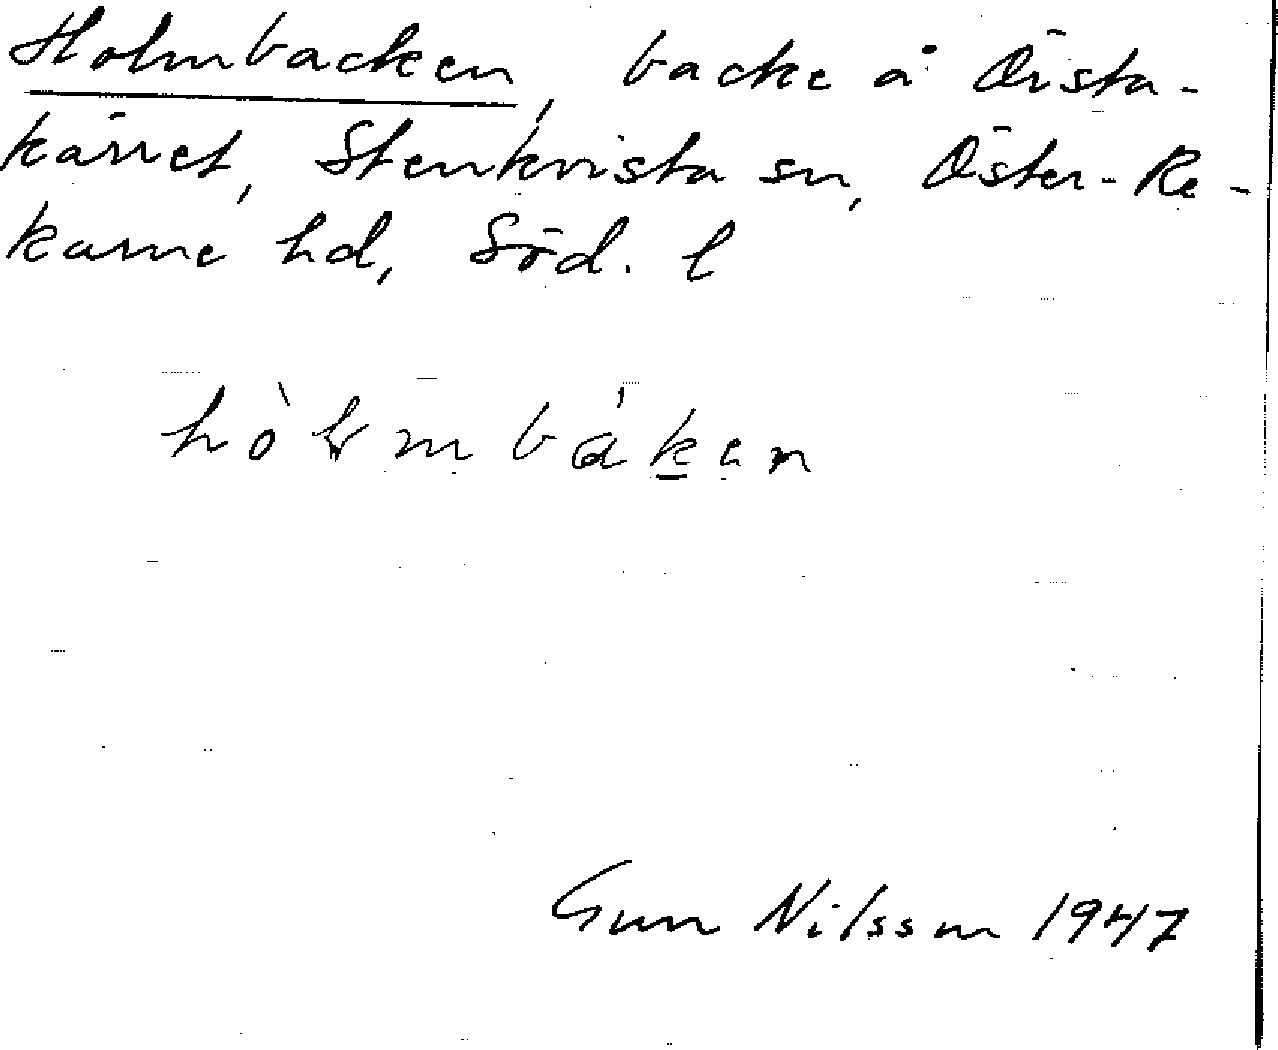 Holmbacken, backe å Örsta-
kärret, Stenkvista sn, Öster-Re-
karne hd, Söd. l
Gun Nilsson 1947